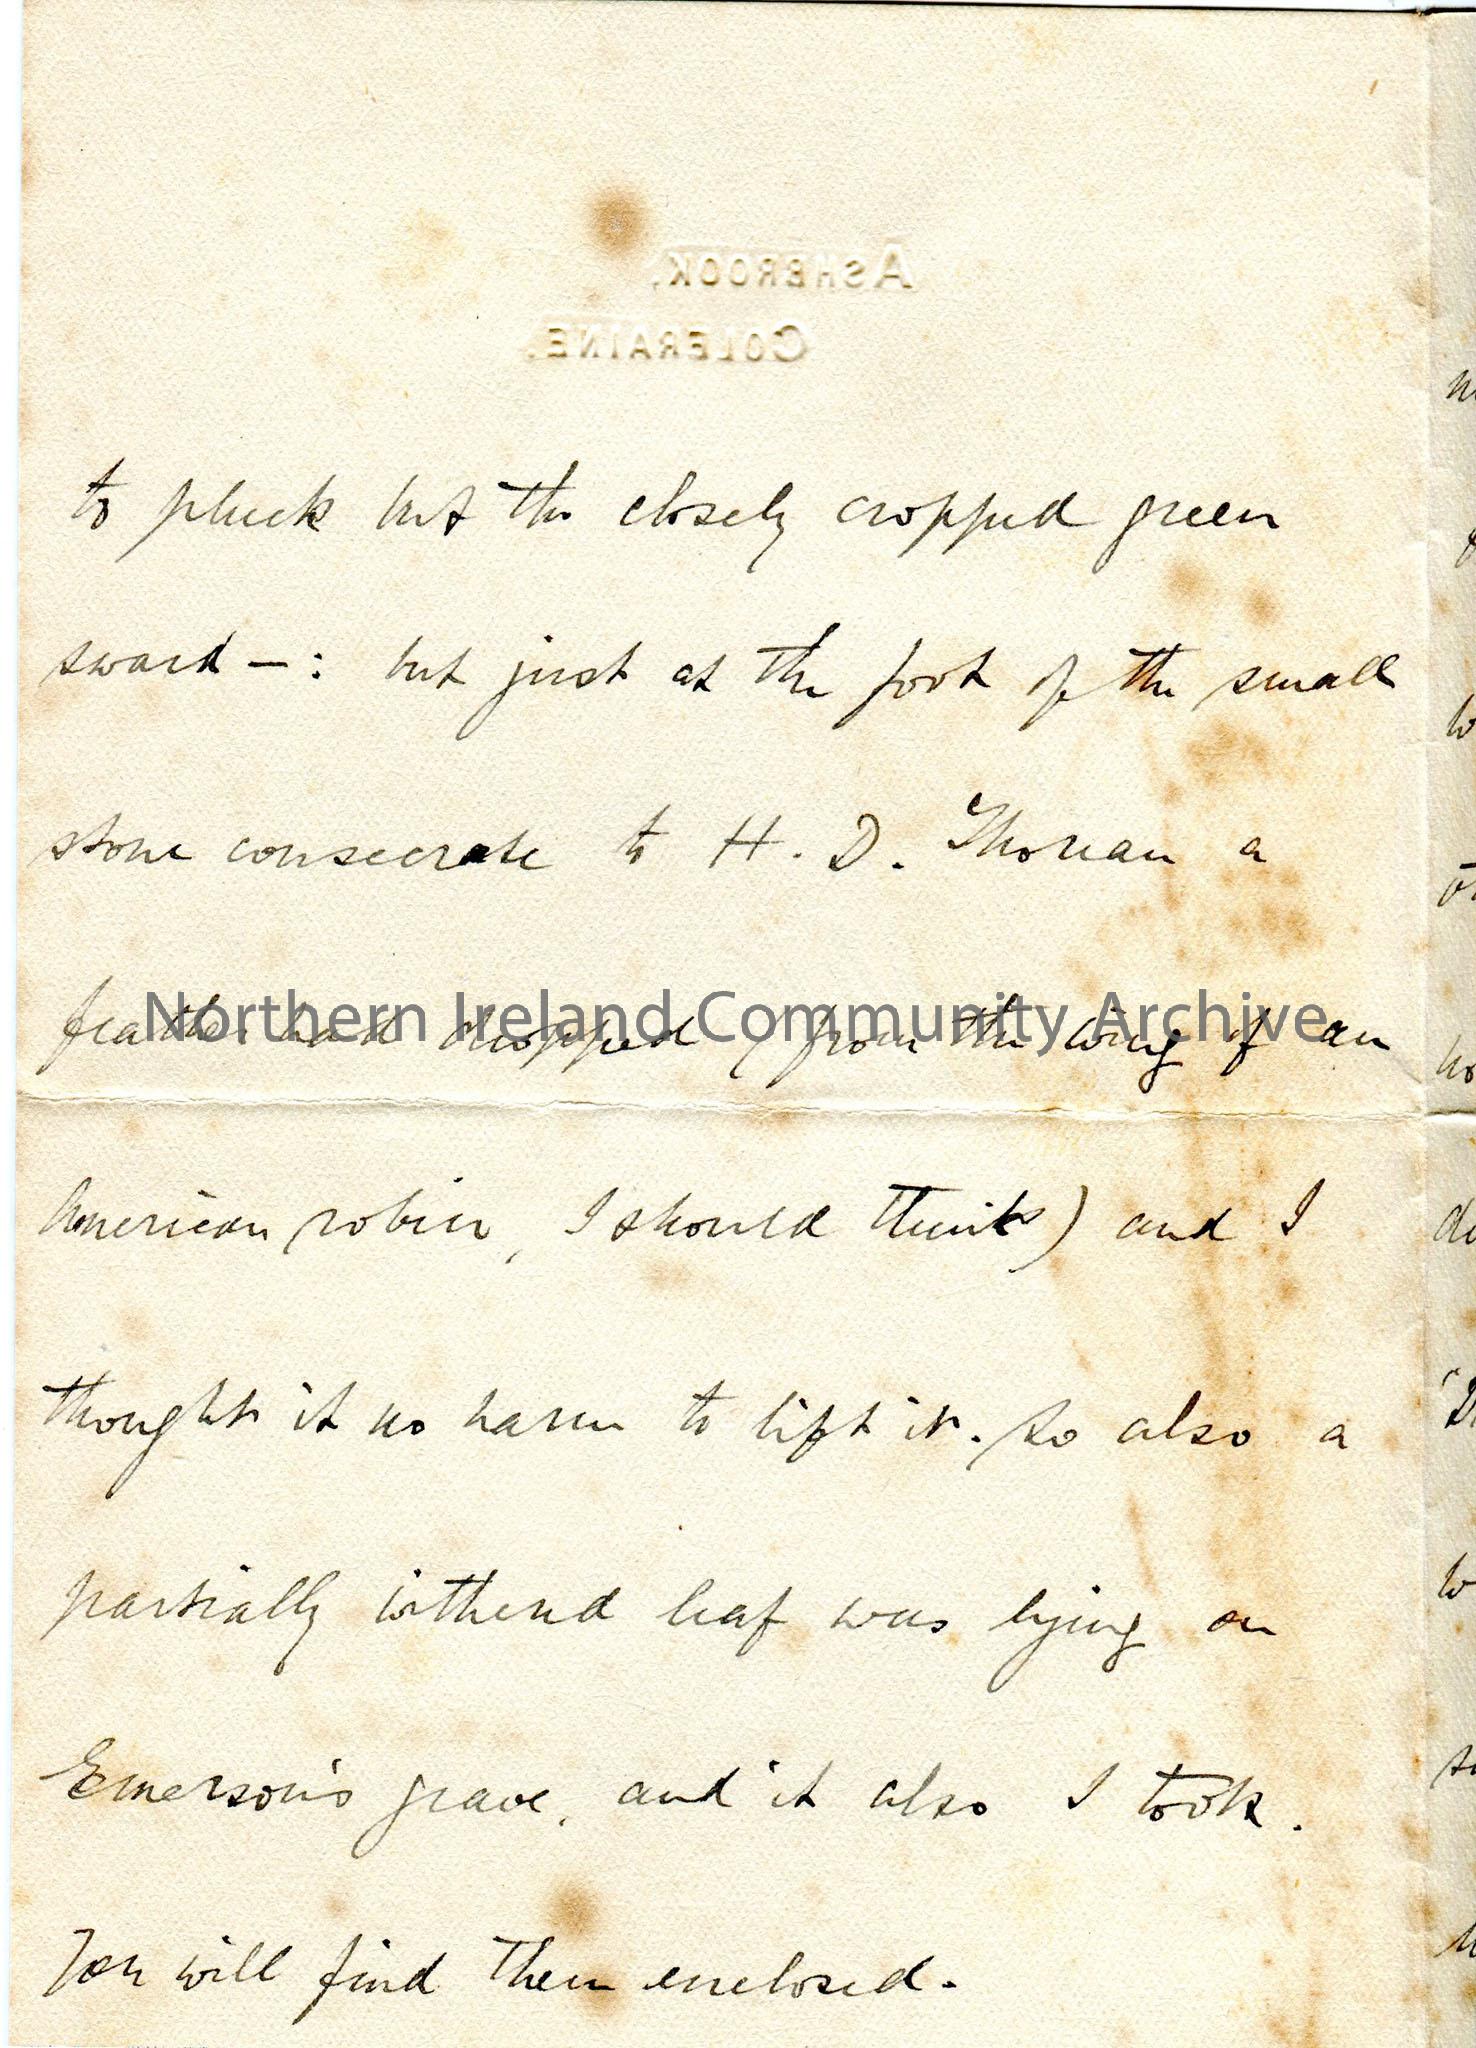 ASHBROOK,
COLERAINE.
to pluck but the closely cropped green
sward —: but just at the foot of the small
stone consecrate to H. D. Thoreau a
feather had dropped (from the wing of an
Northern Ireland Community Archive
American robin, I should think) and I
thought it no harm to lift it. So also a
partially withered leaf was lying on
Emerson's grave, and it also I took.
You will find them enclosed.